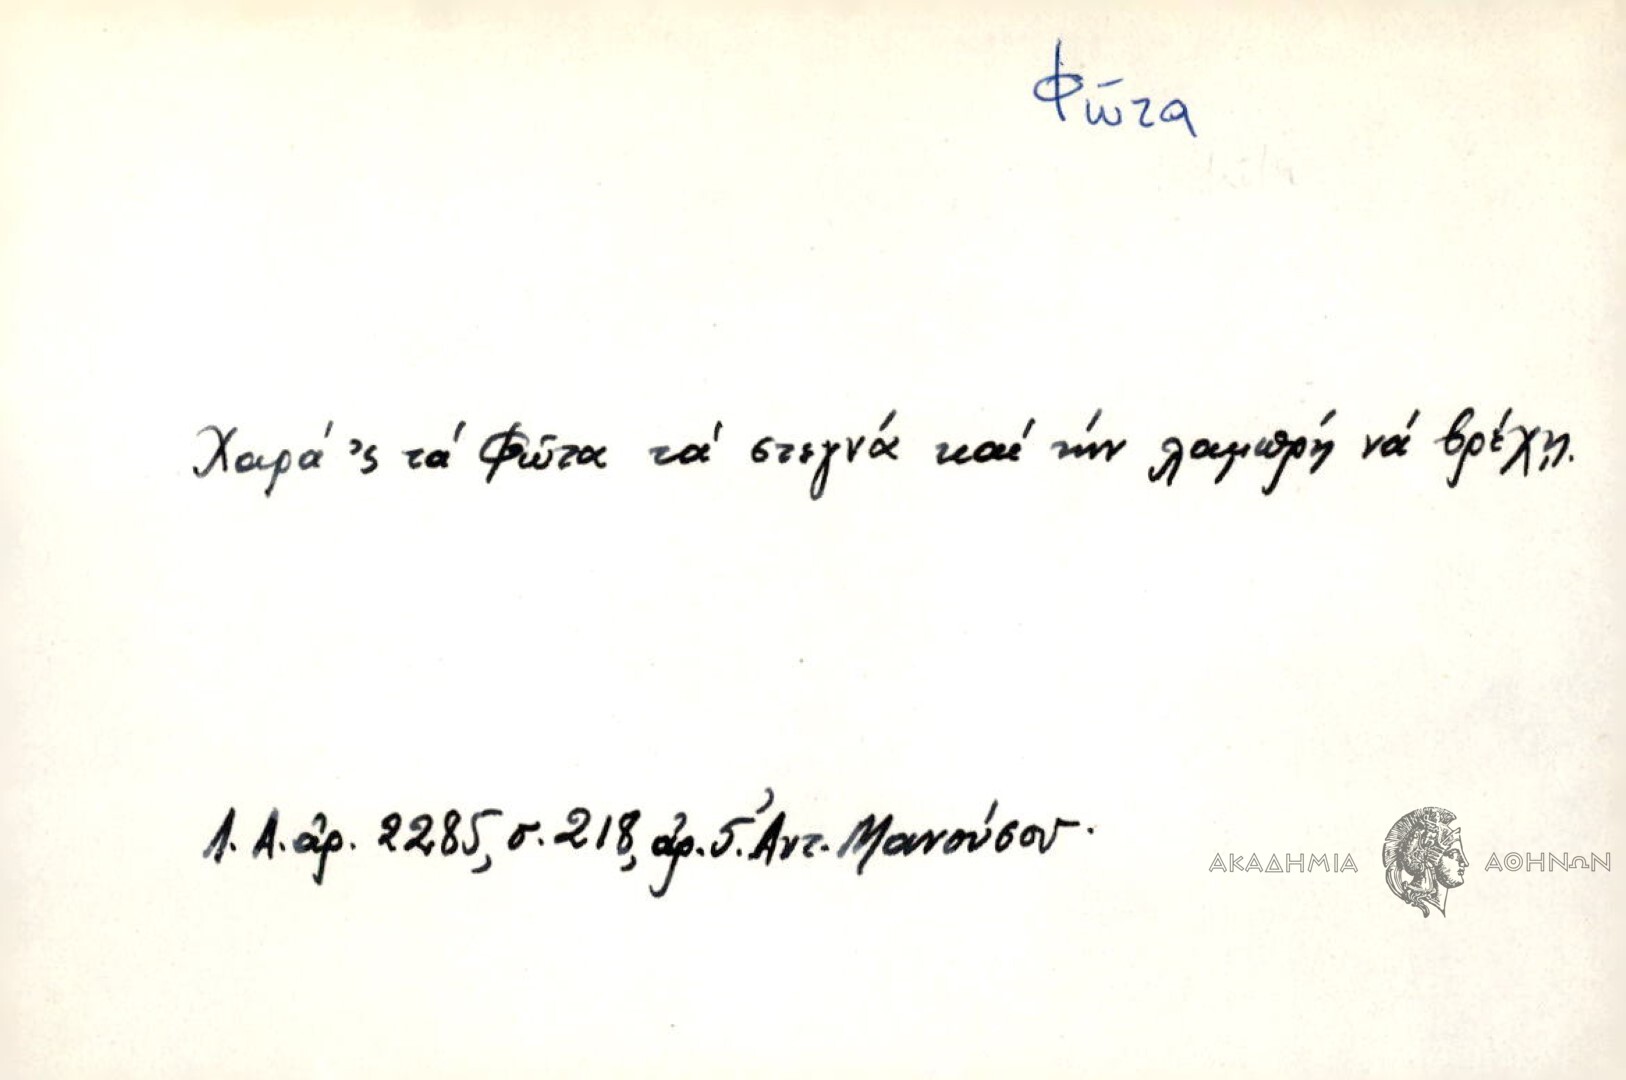 Φῶτα
Χαρά 'ς τά Φῶτα τά στεγνά καί τήν λαμπρή νά βρέχῃ.
Λ. Α. ἀρ. 2285, σ. 218, ἀρ. 5. Ἀντ. Μανούσου.
ΑΚΑΔΗΜΙΑ ΑΘΗΝΩΝ